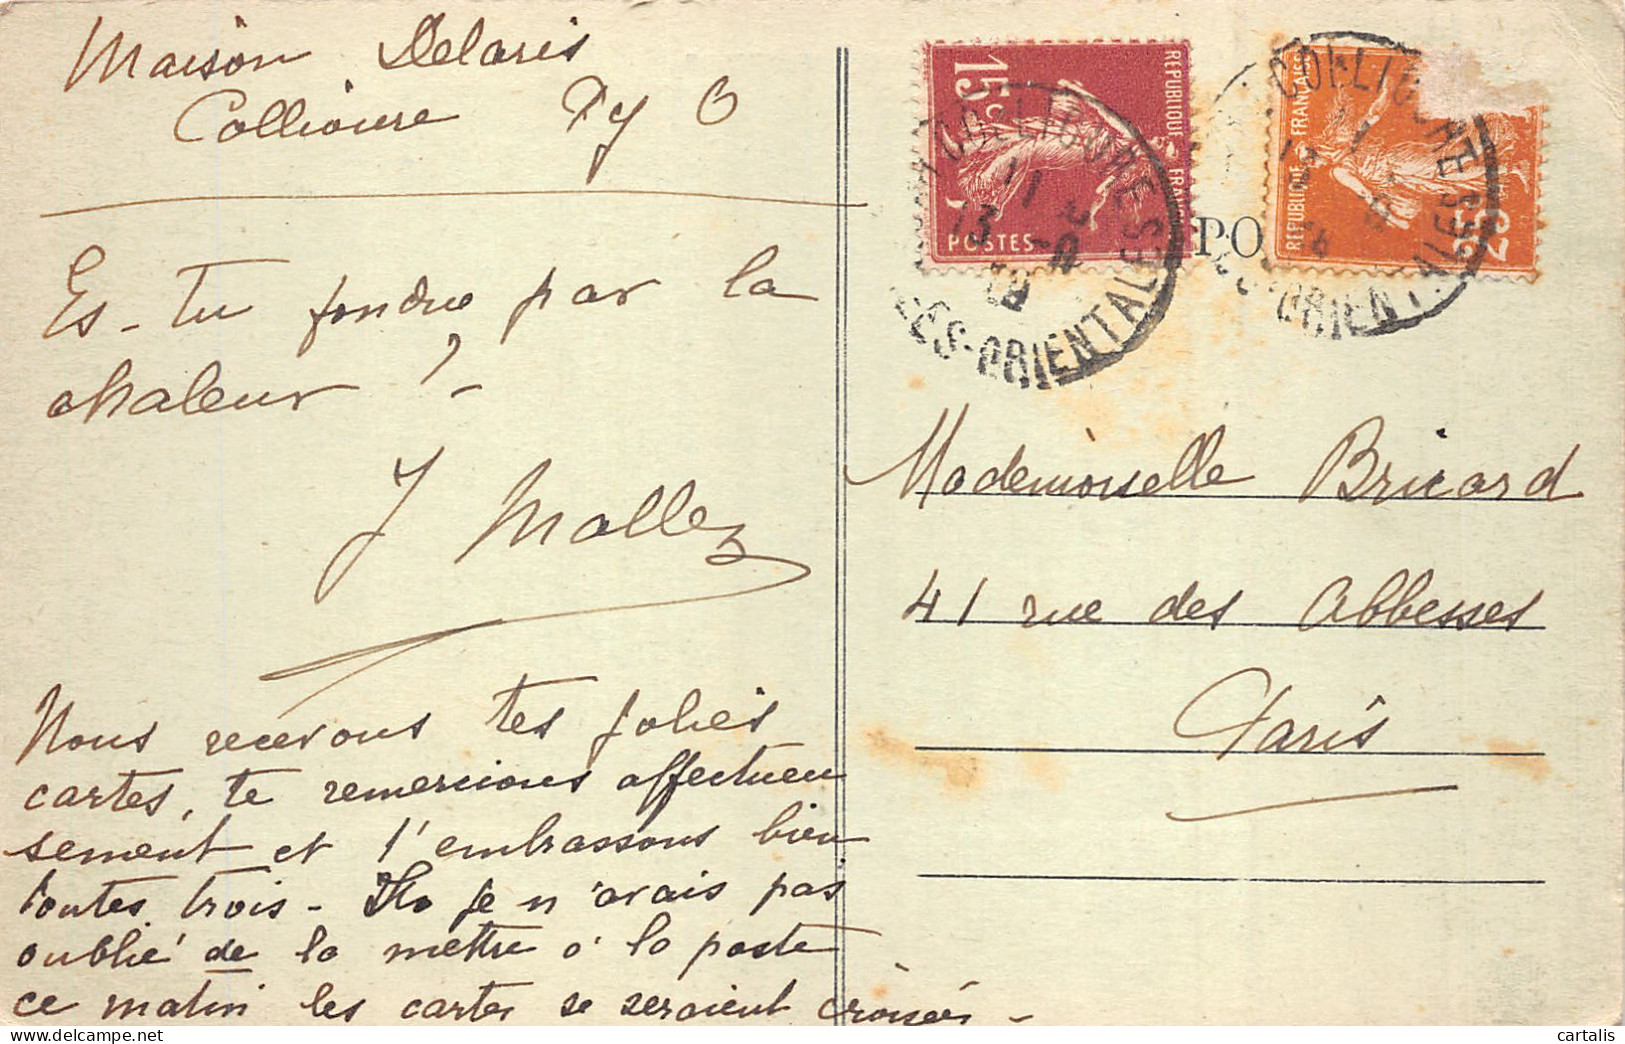 Maison Delaris
Collioure Py O
Es-tu fondue par la
chaleur ? -
J Mallez
Nous recevons tes jolies
cartes, te remercions affectueu
sement et t'embrassons bien
toutes trois - Si je n'avais pas
oublié de la mettre à la poste
ce matin les cartes se seraient croisées -
15c
REPUBLIQUE FRANÇAISE
POSTES
COLLIOURE
11
13
ORIENTALES
PO
REPUBLIQUE FRANÇAISE
25
COLLIOURE
ORIENTALES
Mademoiselle Bricard
41 rue des Abbesses
Paris
cartalis